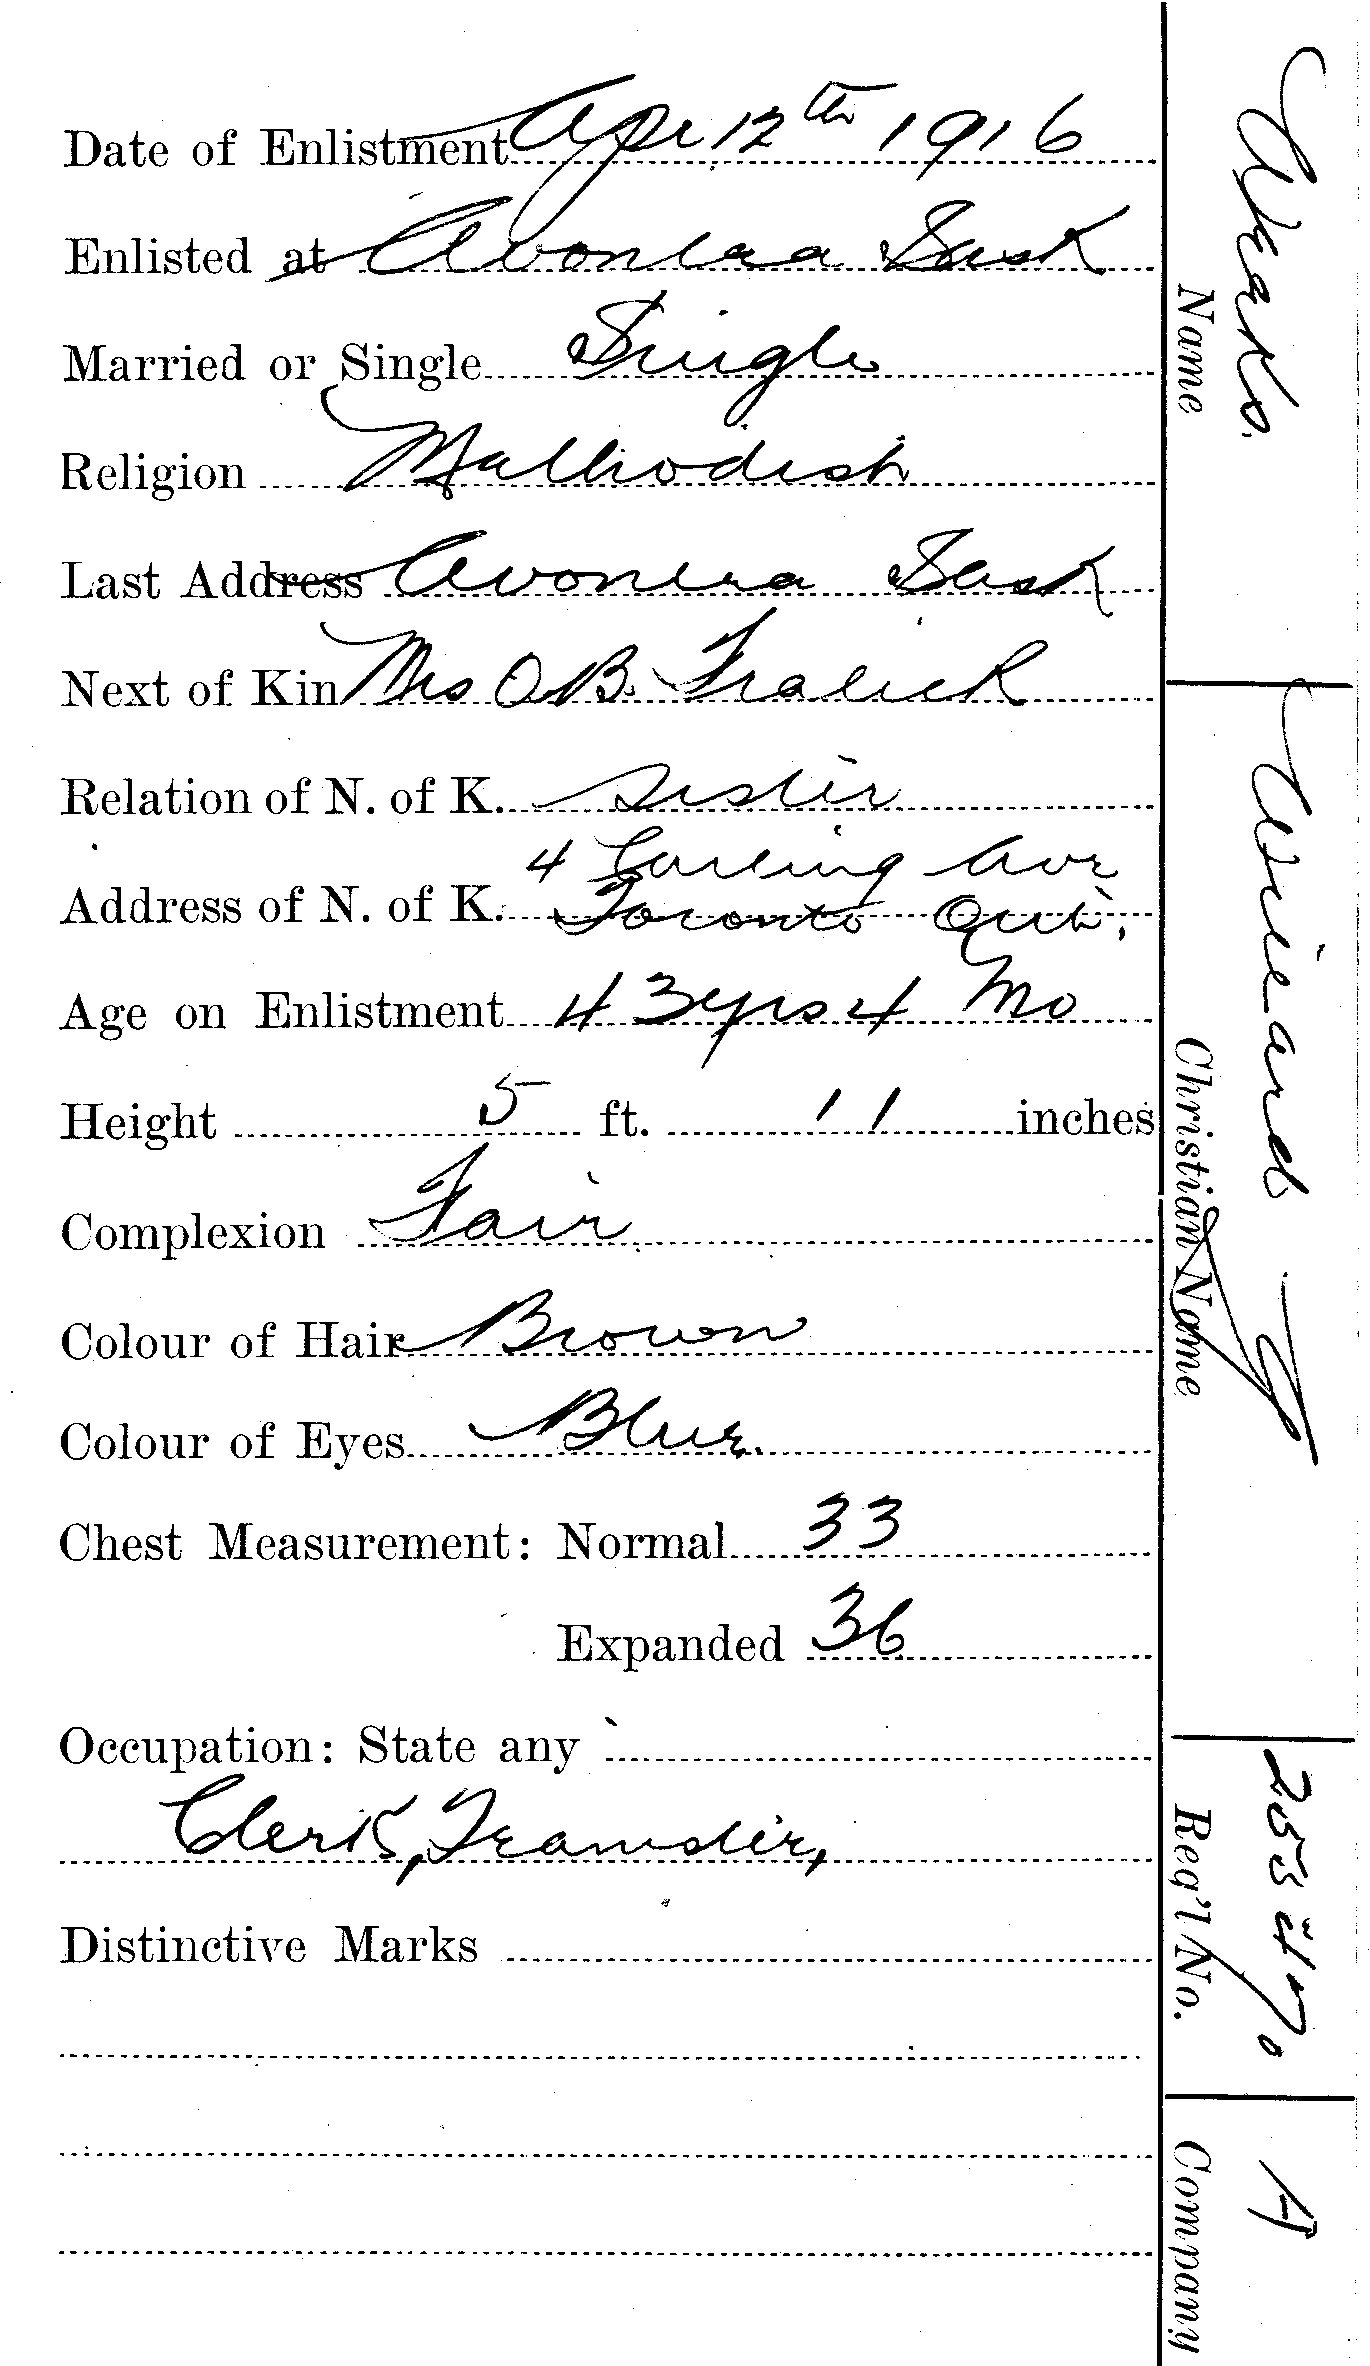 Date of Enlistment Apr 12th 1916
Enlisted at Avonlea Sask
Married or Single Single
Religion Methodist
Last Address Avonlea Sask
Next of Kin Mrs O B. Fralick
Relation of N. of K. Sister
4 Ave
Address of N. of K. Toronto Ont.
Age on Enlistment 43 yrs 4 Mo
Height 5 ft. 11 inches
Complexion Fair
Colour of Hair Brown
Colour of Eyes Blue
Chest Measurement: Normal 33
Expanded 36
Occupation: State any
Clerk, Teamster,
Distinctive Marks
Name
Christian Name Y
Reg'l No.
Company A